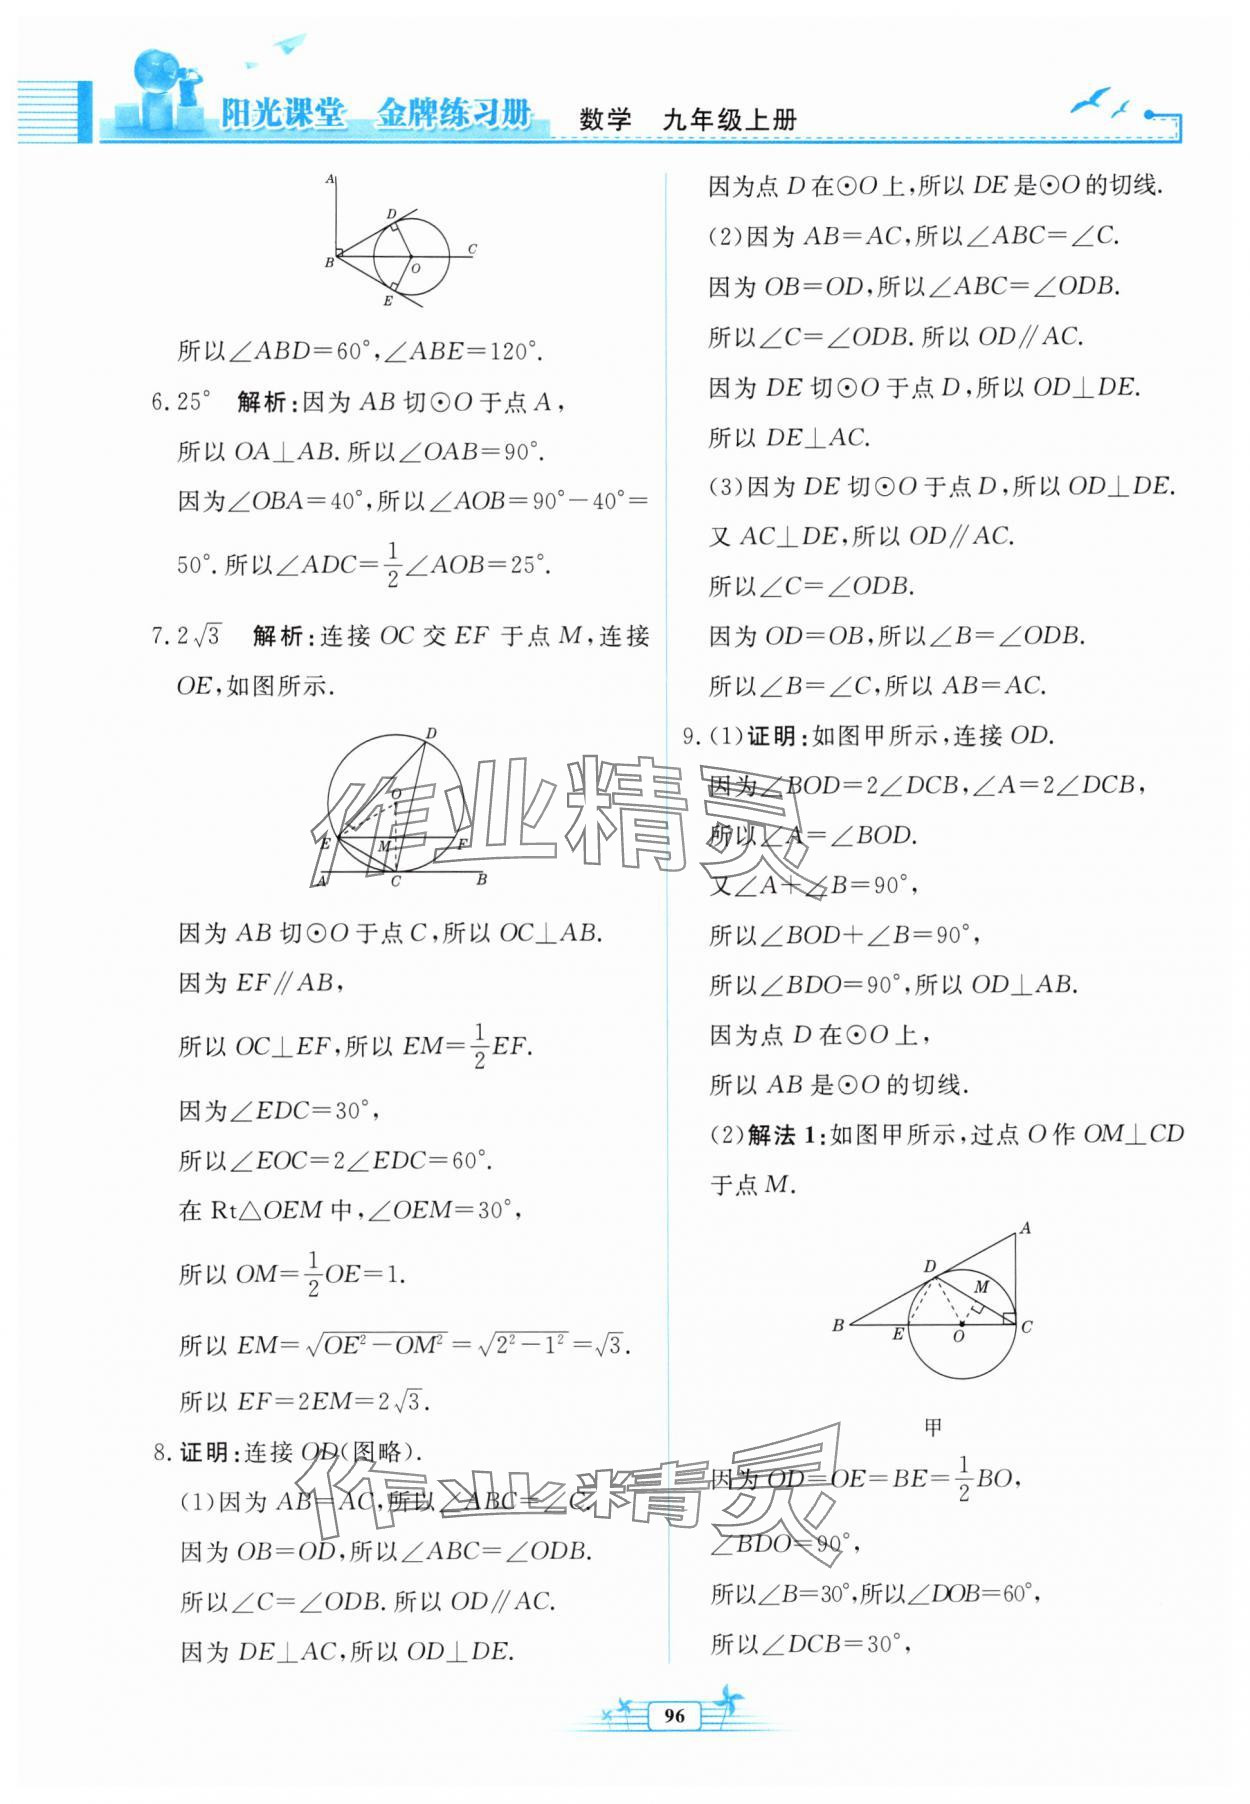 阳光课堂 金牌练习册 数学 九年级上册
A
D
B
O
C
E
所以∠ABD=60°,∠ABE=120°.
6.25° 解析:因为 AB 切⊙O 于点 A,
所以 OA⊥AB.所以∠OAB=90°.
因为∠OBA=40°,所以∠AOB=90°-40°=
50°.所以∠ADC=1/2∠AOB=25°.
7.2√3 解析:连接 OC 交 EF 于点 M,连接
OE,如图所示.
D
O
E
M
F
A
C
B
因为 AB 切⊙O 于点 C,所以 OC⊥AB.
因为 EF∥AB,
所以 OC⊥EF,所以 EM=1/2EF.
因为∠EDC=30°,
所以∠EOC=2∠EDC=60°.
在 Rt△OEM 中,∠OEM=30°,
所以 OM=1/2OE=1.
所以 EM=√(OE²-OM²)=√(2²-1²)=√3.
所以 EF=2EM=2√3.
8.证明:连接 OD(图略).
(1)因为 AB=AC,所以∠ABC=∠C.
因为 OB=OD,所以∠ABC=∠ODB.
所以∠C=∠ODB.所以 OD∥AC.
因为 DE⊥AC,所以 OD⊥DE.
因为点 D 在⊙O 上,所以 DE 是⊙O 的切线.
(2)因为 AB=AC,所以∠ABC=∠C.
因为 OB=OD,所以∠ABC=∠ODB.
所以∠C=∠ODB.所以 OD∥AC.
因为 DE 切⊙O 于点 D,所以 OD⊥DE.
所以 DE⊥AC.
(3)因为 DE 切⊙O 于点 D,所以 OD⊥DE.
又 AC⊥DE,所以 OD∥AC.
所以∠C=∠ODB.
因为 OD=OB,所以∠B=∠ODB.
所以∠B=∠C,所以 AB=AC.
9.(1)证明:如图甲所示,连接 OD.
因为∠BOD=2∠DCB,∠A=2∠DCB,
所以∠A=∠BOD.
又∠A+∠B=90°,
所以∠BOD+∠B=90°,
所以∠BDO=90°,所以 OD⊥AB.
因为点 D 在⊙O 上,
所以 AB 是⊙O 的切线.
(2)解法 1:如图甲所示,过点 O 作 OM⊥CD
于点 M.
A
D
M
B
E
O
C
甲
因为 OD=OE=BE=1/2BO,
∠BDO=90°,
所以∠B=30°,所以∠DOB=60°,
所以∠DCB=30°,
作业精灵
作业精灵
96